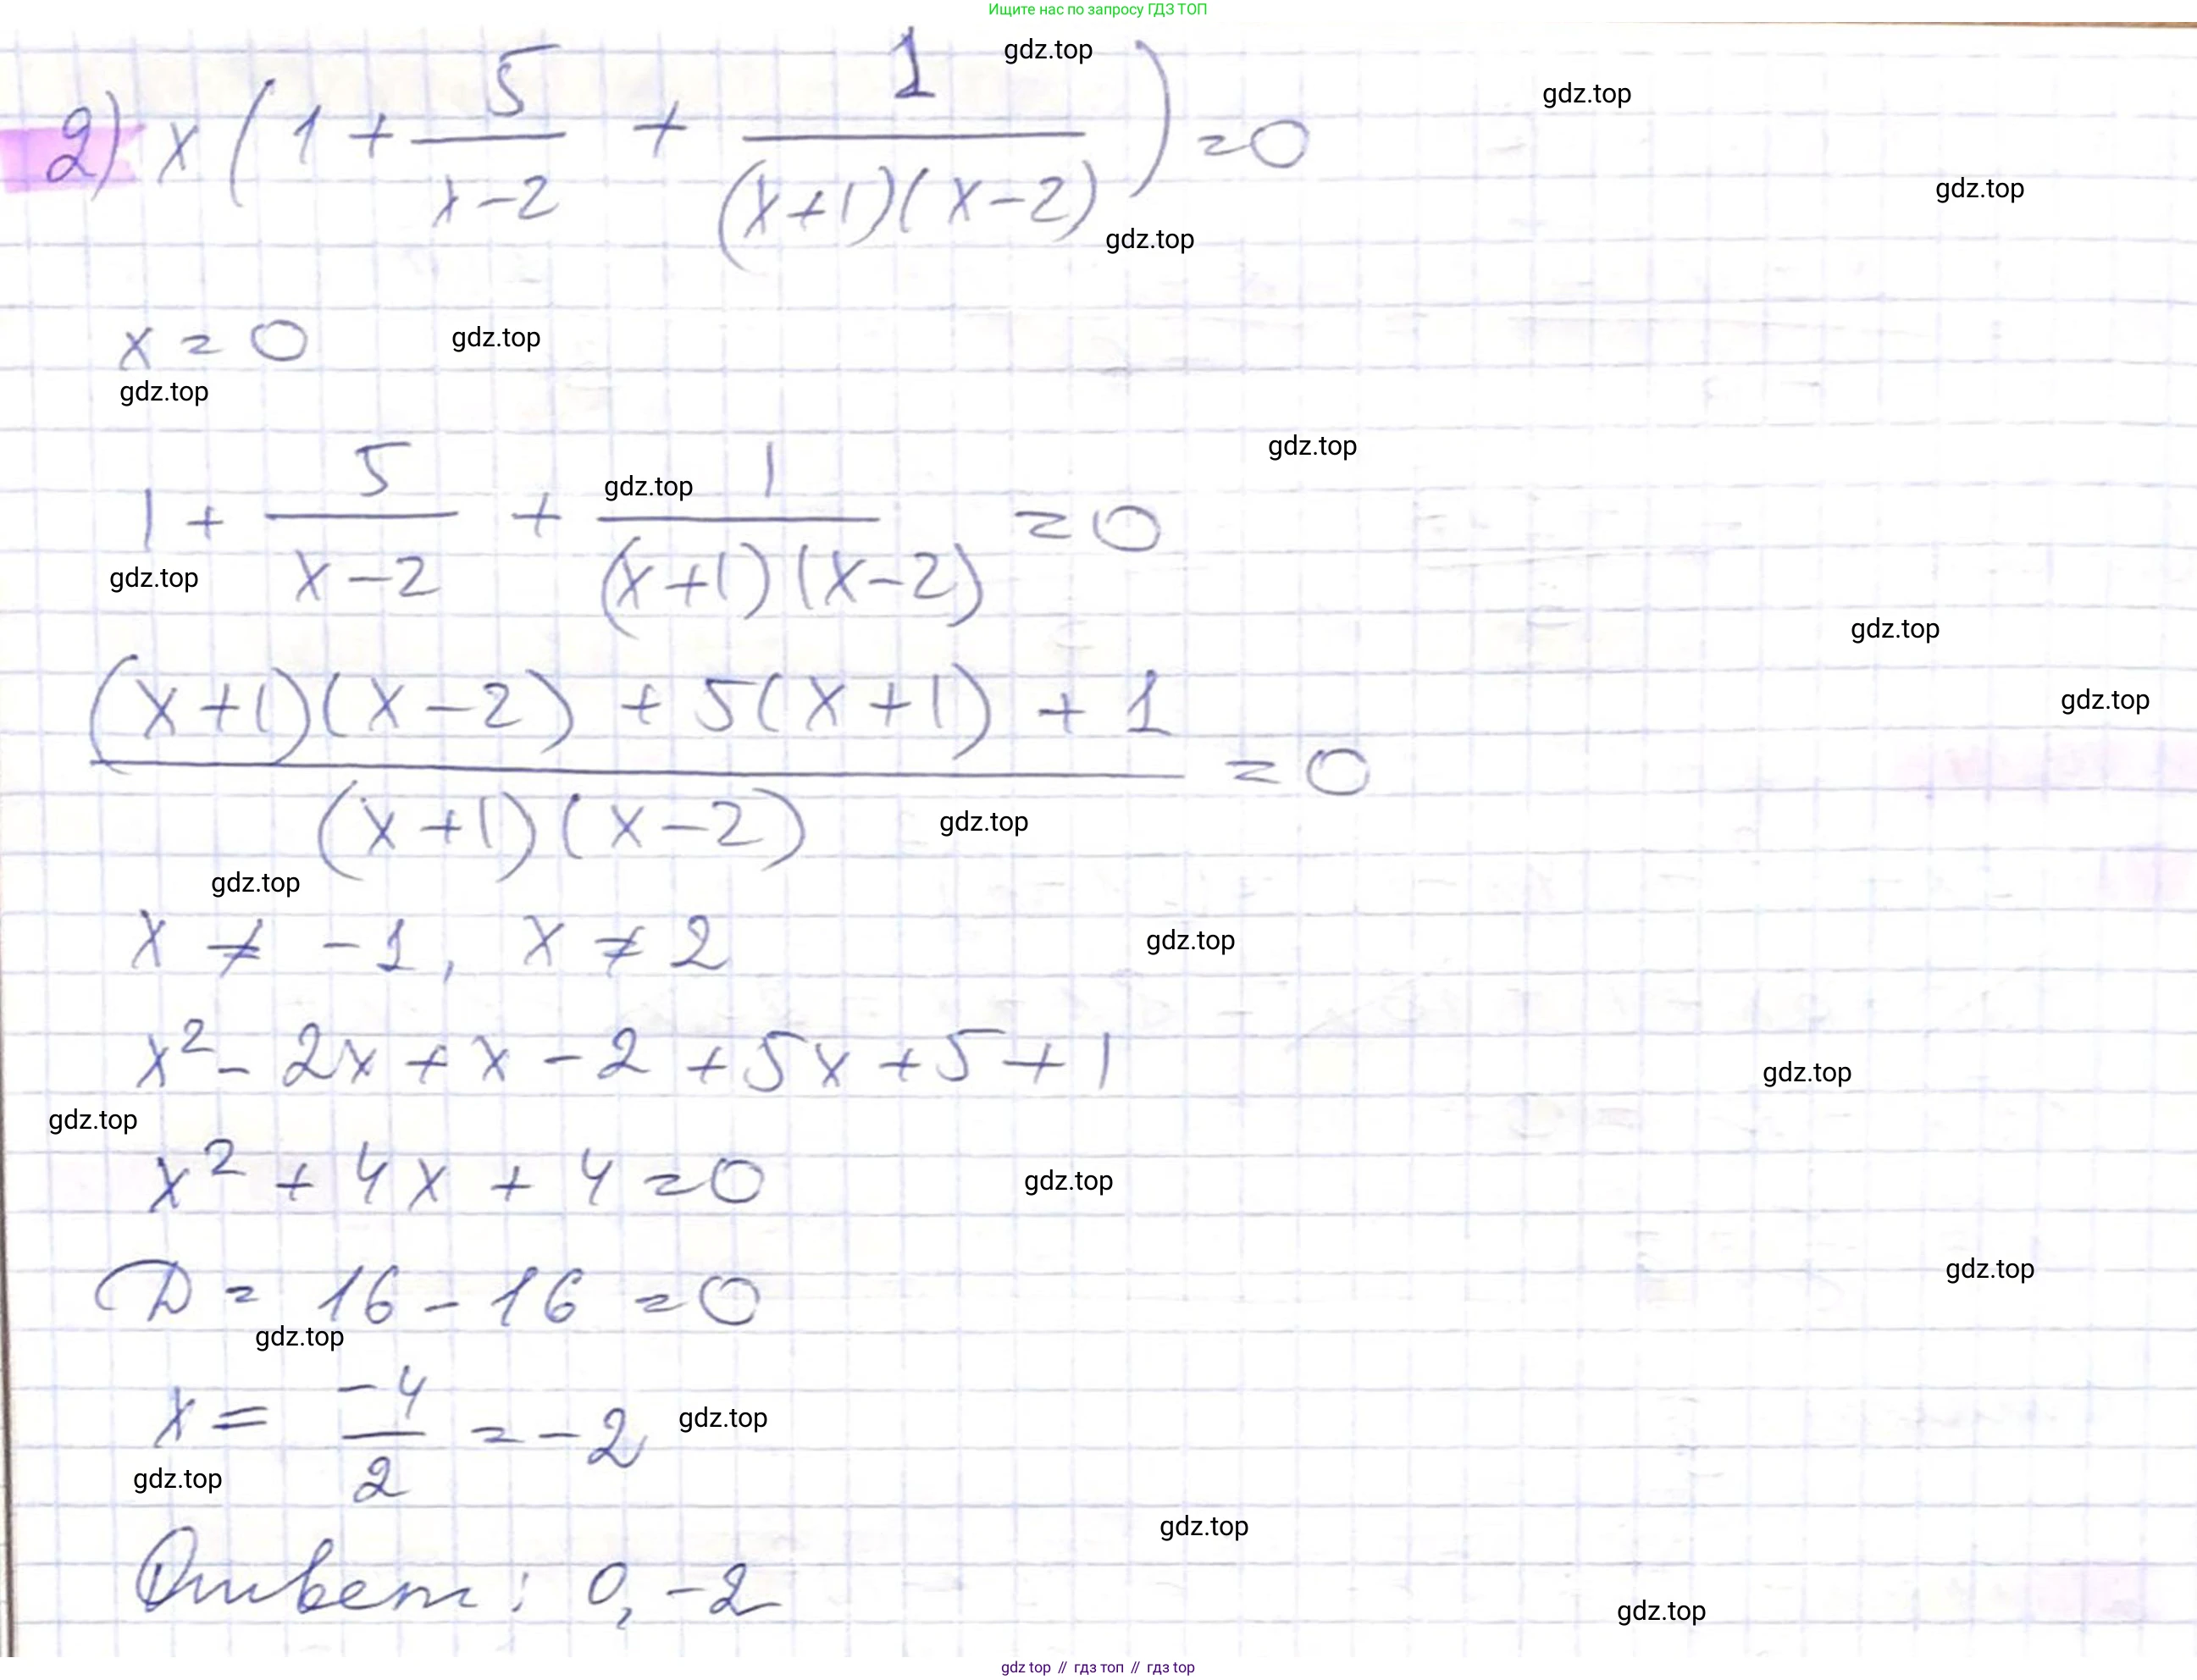 Ищите нас по запросу ГДЗ ТОП
gdz.top
gdz.top
2) x(1 + 5/(x-2) + 1/((x+1)(x-2))) = 0
gdz.top
gdz.top
x = 0
gdz.top
gdz.top
gdz.top
1 + 5/(x-2) + 1/((x+1)(x-2)) = 0
gdz.top
gdz.top
gdz.top
gdz.top
((x+1)(x-2) + 5(x+1) + 1)/((x+1)(x-2)) = 0
gdz.top
gdz.top
x ≠ -1, x ≠ 2
gdz.top
x² - 2x + x - 2 + 5x + 5 + 1
gdz.top
gdz.top
x² + 4x + 4 = 0
gdz.top
D = 16 - 16 = 0
gdz.top
gdz.top
x = -4/2 = -2
gdz.top
gdz.top
gdz.top
Ответ: 0, -2
gdz.top
gdz top // гдз топ // гдз top